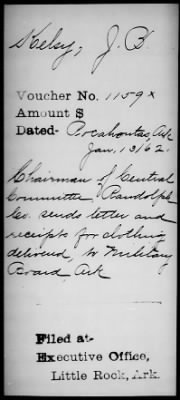 Kelsy, J. B.
Voucher No. 1159x
Amount $
Dated- Pocahontas, Ark
Jan, 13/62.
Chairman of Central
Committee Randolph
Co. sends letter and
receipts for clothing
delivered, to Military
Board, Ark
Filed at-
Executive Office,
Little Rock, Ark.